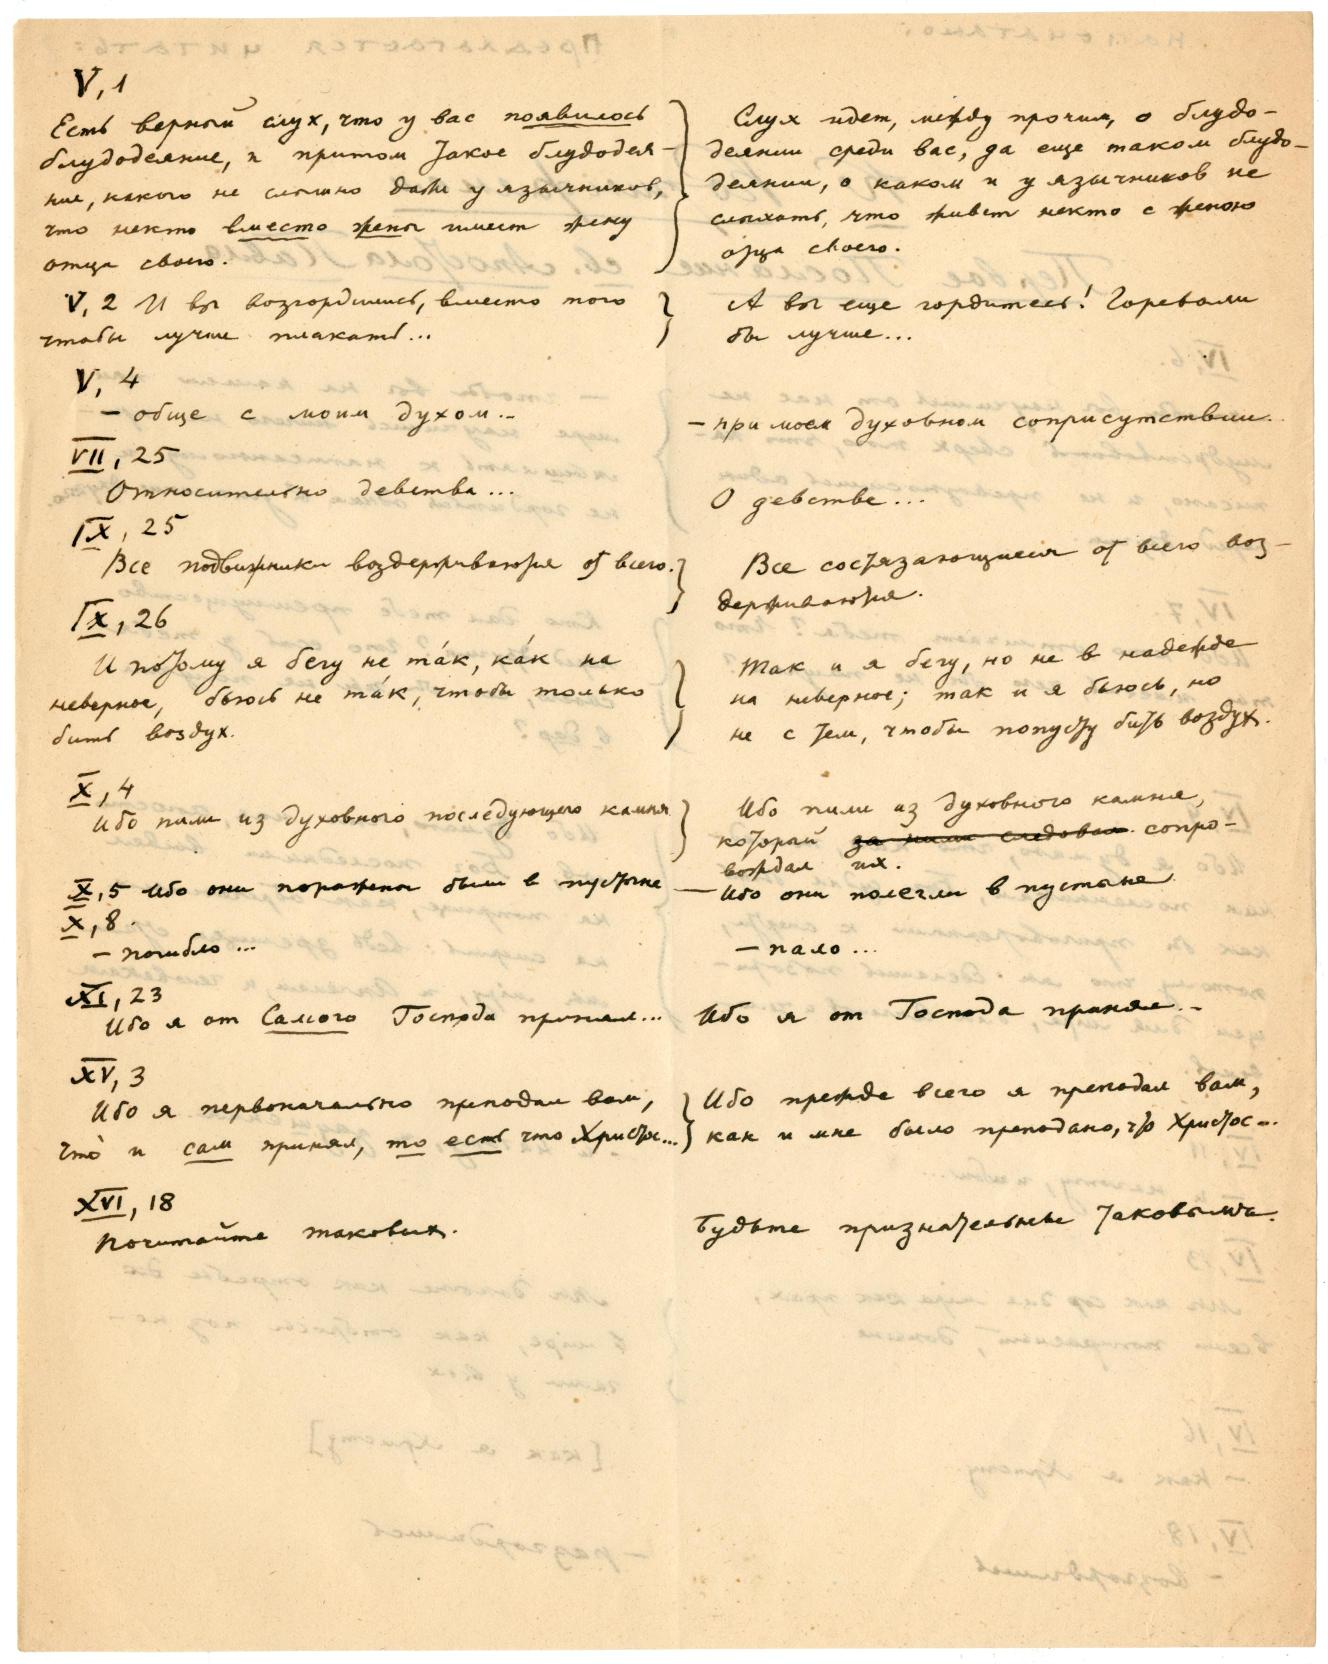 V, 1
Есть верный слух, что у вас появилось
блудодеяние, и притом такое блудодея-
ние, какого не слышно даже у язычников,
что некто вместо жены имеет жену
отца своего.
Слух идет, между прочим, о блудо-
деянии среди вас, да еще таком блудо-
деянии, о каком и у язычников не
слыхать, что живет некто с женою
отца своего.
V, 2 И вы возгордились, вместо того
чтобы лучше плакать...
А вы еще гордитесь! Горевали
бы лучше...
V, 4
- обще с моим духом...
- при моем духовном соприсутствии.
VII, 25
Относительно девства...
О девстве...
IX, 25
Все подвижники воздерживаются от всего.
Все состязающиеся от всего воз-
держиваются.
IX, 26
И потому я бегу не та́к, ка́к на
неверное, бьюсь не та́к, чтобы только
бить воздух.
Так и я бегу, но не в надежде
на неверное; так и я бьюсь, но
не с тем, чтобы попусту бить воздух.
X, 4
Ибо пили из духовного последующего камня
Ибо пили из духовного камня,
который за ними следовал сопро-
вождал их.
X, 5 Ибо они поражены были в пустыне
— Ибо они полегли в пустыне
X, 8.
- погибло...
- пало...
XI, 23
Ибо я от Самого Господа принял...
Ибо я от Господа принял...
XV, 3
Ибо я первоначально преподал вам,
что̀ и сам принял, то есть что Христос...
Ибо прежде всего я преподал вам,
как и мне было преподано, что Христос...
XVI, 18
Почитайте таковых.
Будьте признательны таковым.